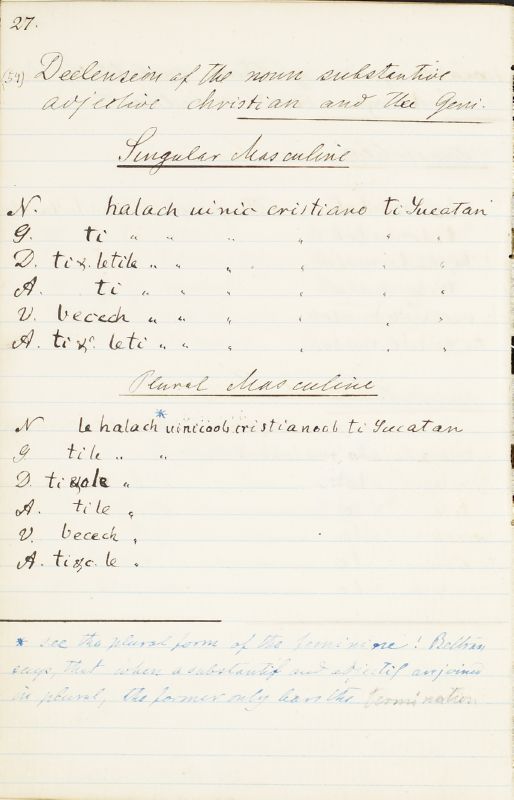 27.
(54) Declension of the noun substantive
adjective christian and the Geni.
Singular Masculine
N. halach uinic cristiano ti Yucatan
G. ti " " " " " "
D. ti &. letile " " " " " "
A. ti " " " " " "
V. becech " " " " " "
A. ti &c. leti " " " " " "
Plural Masculine
N le halach * uinicoob cristianoob ti Yucatan
G. tile " "
D. ti ole "
A. tile "
V. becech "
A. ti &c. le "
* see the plural form of the feminine! Beltran
says, that when a substantif and adjectif are joined
in plural, the former only bears the termination